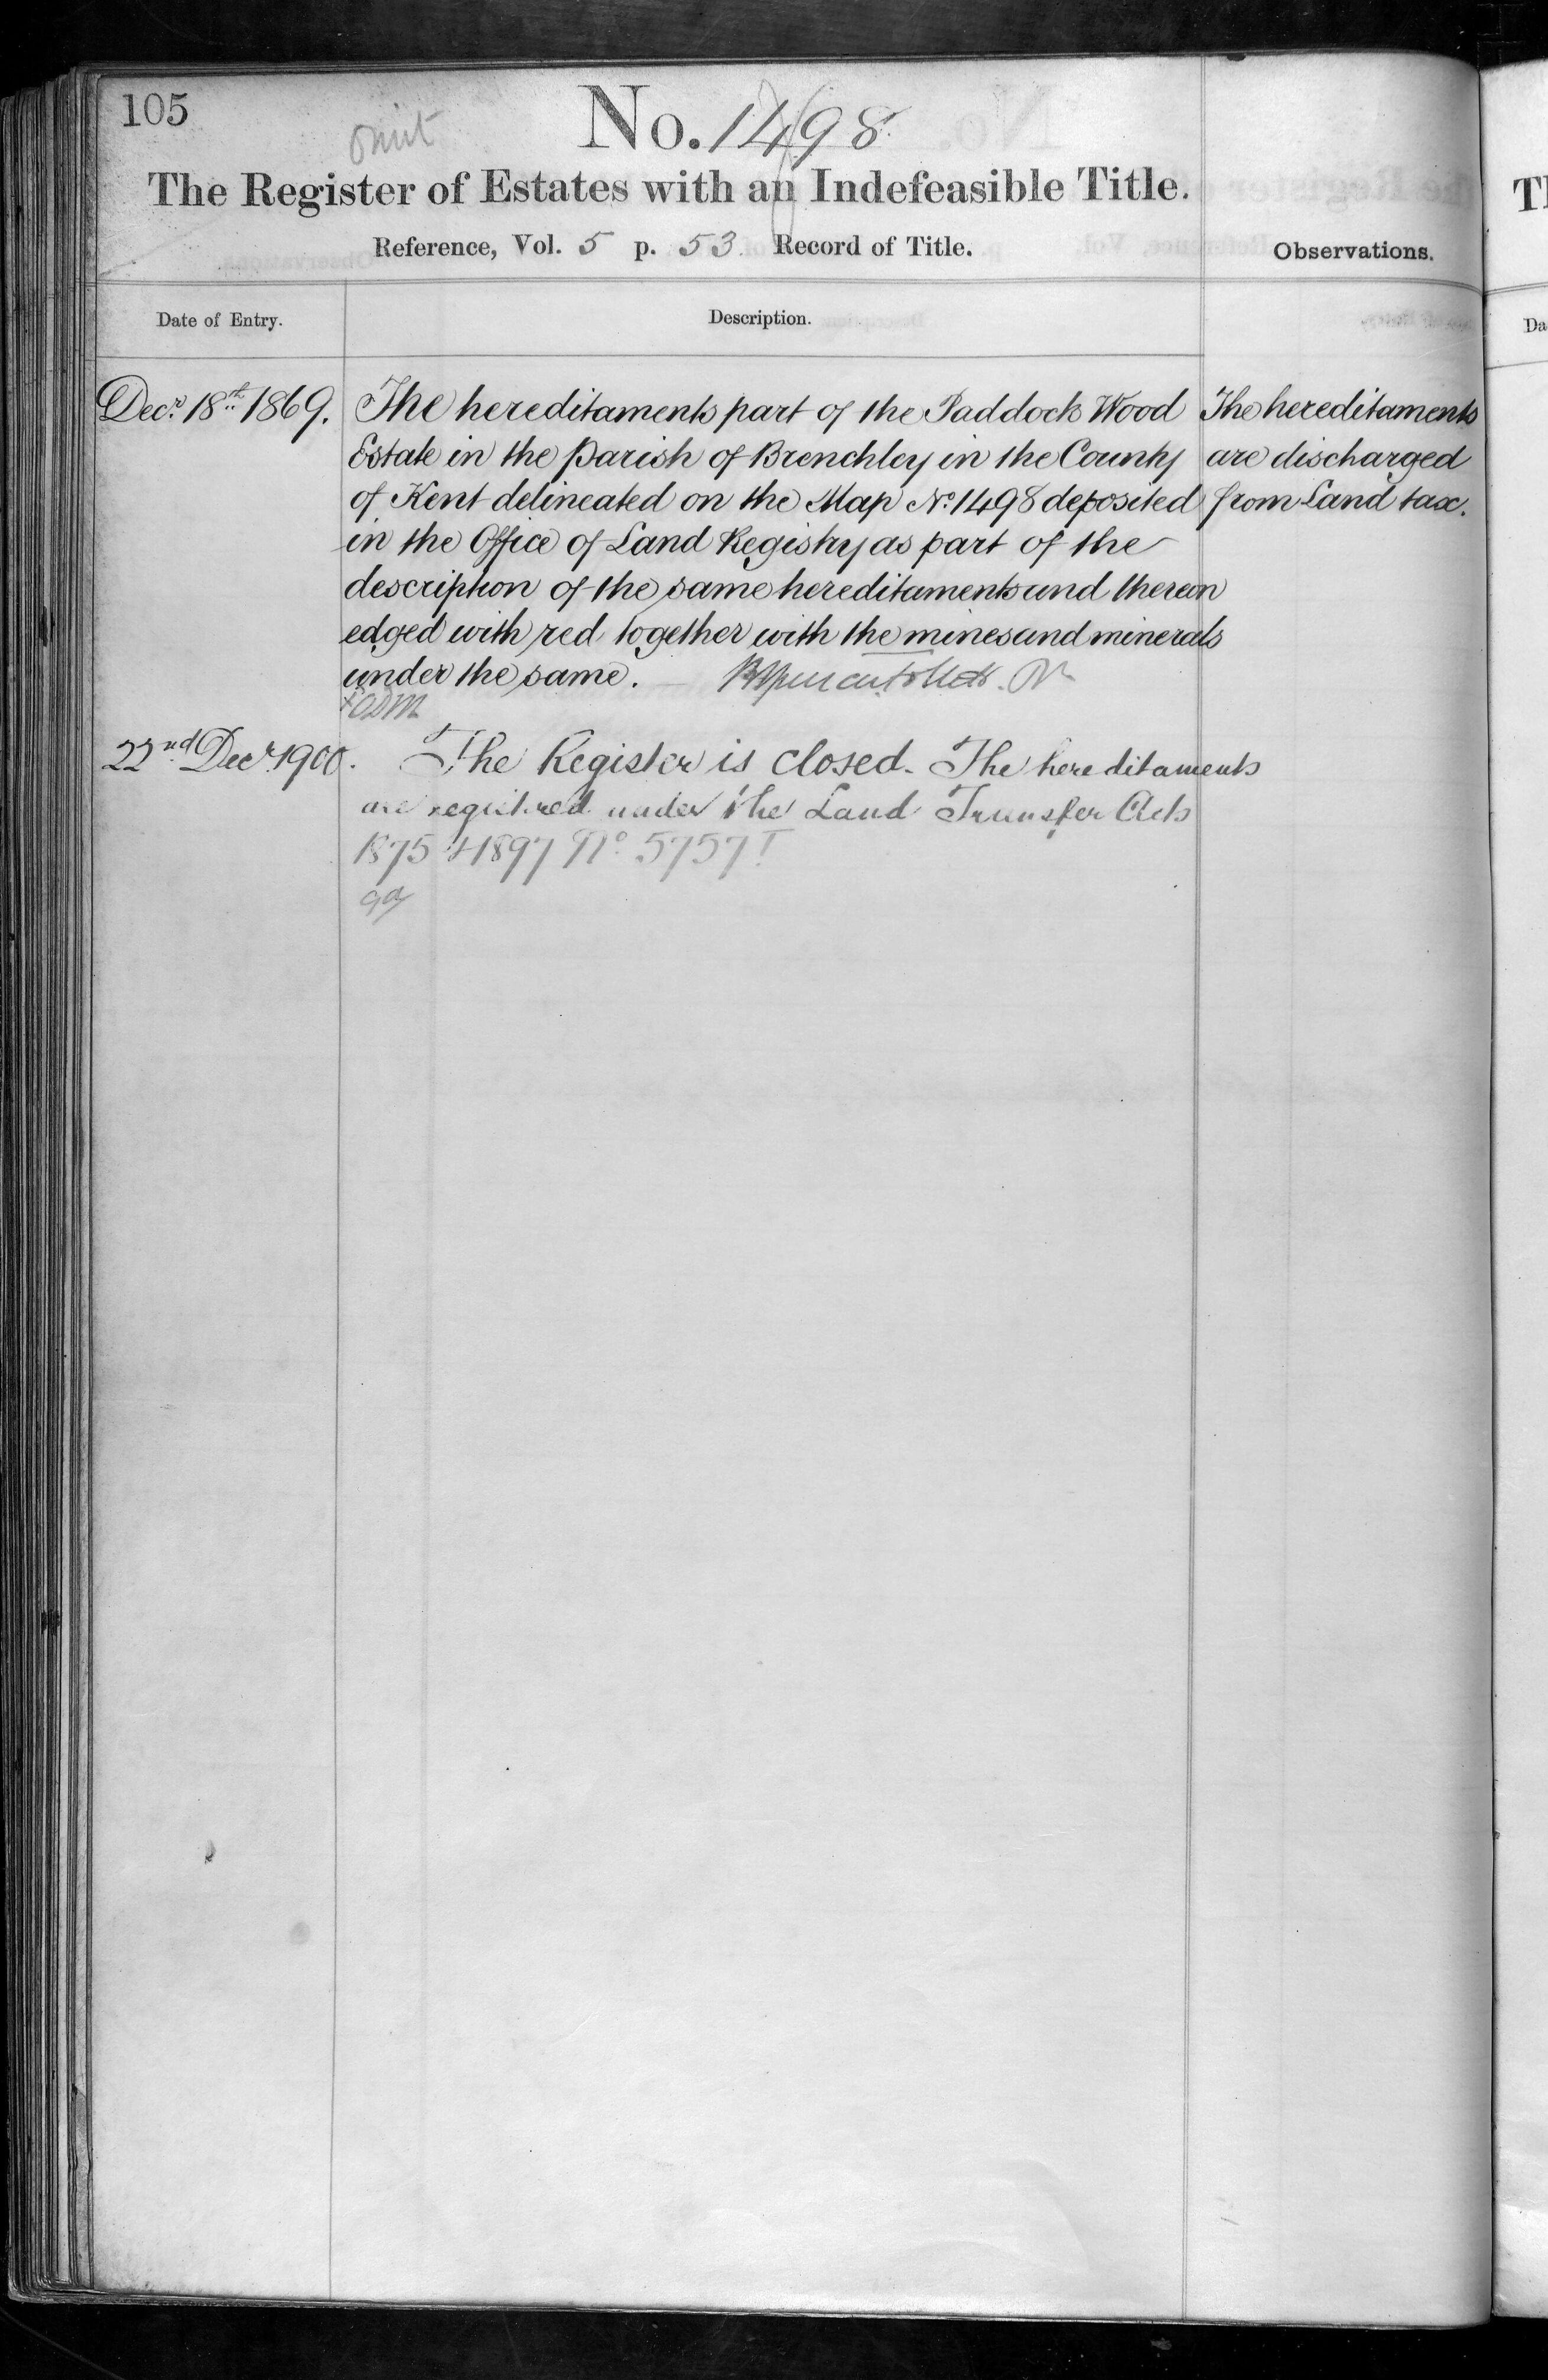 105
omit
No. 1498.
The Register of Estates with an Indefeasible Title.
Reference, Vol. 5 p. 53 Record of Title.
Observations.
Date of Entry.
Description.
Decr. 18th 1869.
The hereditaments part of the Paddock Wood
Estate in the parish of Brenchley in the County
of Kent delineated on the Map No. 1498 deposited
in the Office of Land Registry as part of the
description of the same hereditaments and thereon
edged with red together with the mines and minerals
under the same.
The hereditaments
are discharged
from Land tax.
22nd Decr. 1900.
The Register is closed. The hereditaments
are registered under the Land Transfer Acts
1875 & 1897 No 5757